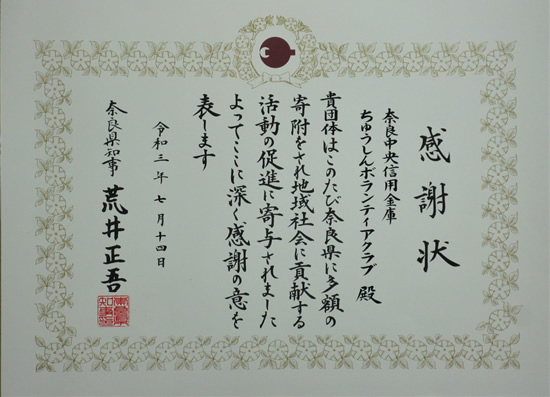 感謝状
奈良中央信用金庫
ちゅうしんボランティアクラブ 殿
貴団体はこのたび奈良県に多額の
寄附をされ地域社会に貢献する
活動の促進に寄与されました
よってここに深く感謝の意を
表します
令和三年七月十四日
奈良県知事 荒井正吾